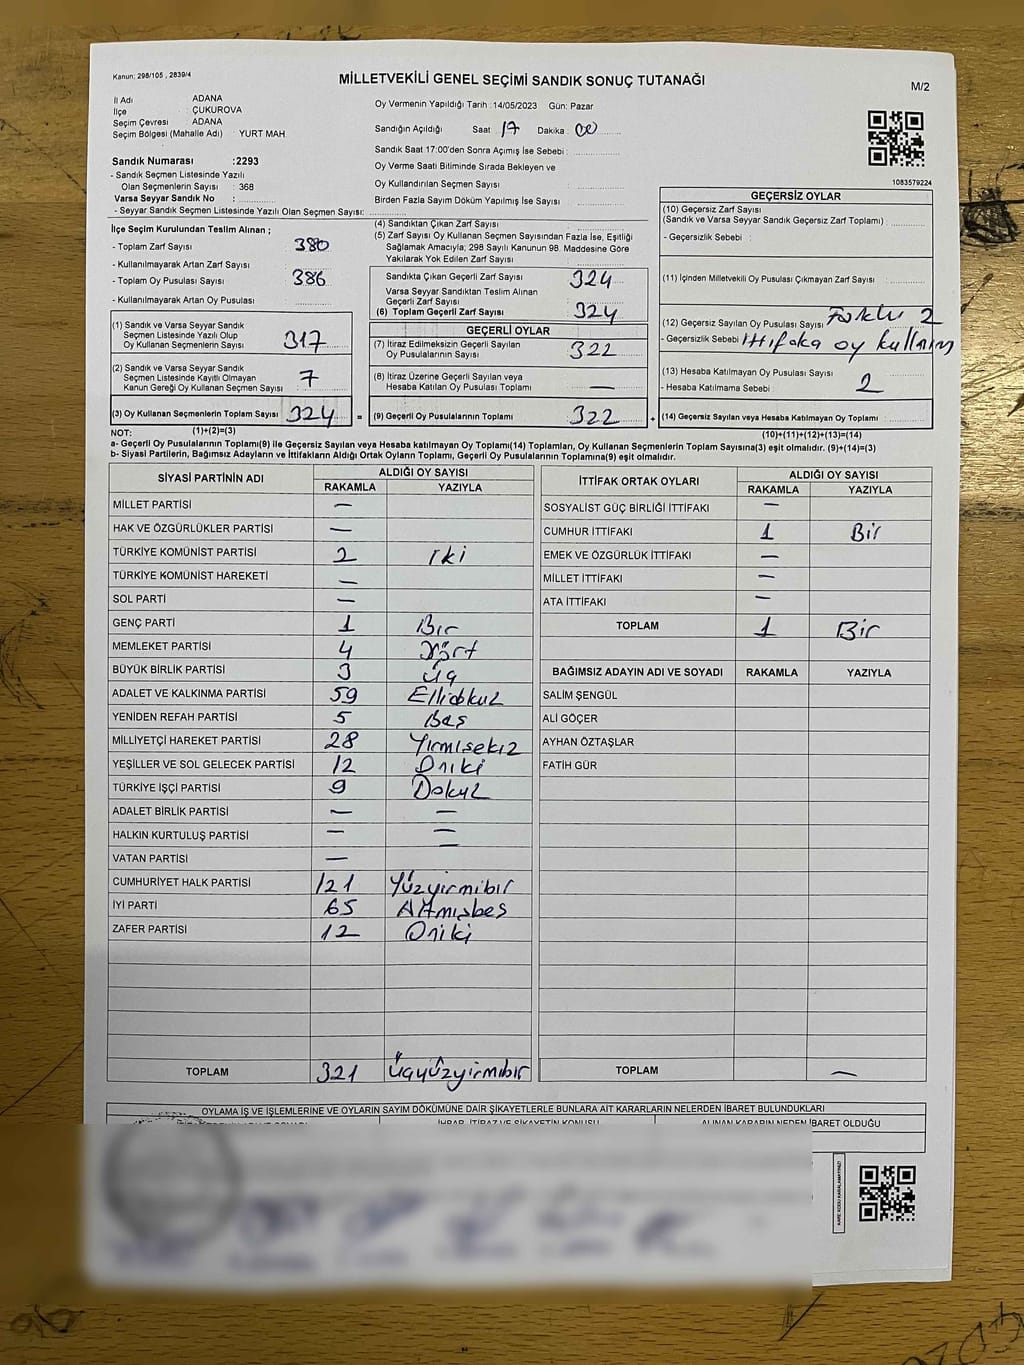 Kanun: 298/105 , 2839/4
MİLLETVEKİLİ GENEL SEÇİMİ SANDIK SONUÇ TUTANAĞI
M/2
İl Adı ADANA
İlçe : ÇUKUROVA
Seçim Çevresi : ADANA
Seçim Bölgesi (Mahalle Adı) : YURT MAH.
Sandık Numarası :2293
- Sandık Seçmen Listesinde Yazılı
Olan Seçmenlerin Sayısı : 368
Varsa Seyyar Sandık No :
- Seyyar Sandık Seçmen Listesinde Yazılı Olan Seçmen Sayısı:
Oy Vermenin Yapıldığı Tarih :14/05/2023 Gün: Pazar
Sandığın Açıldığı Saat 17 Dakika : 00
Sandık Saat 17:00'den Sonra Açımış İse Sebebi :
Oy Verme Saati Bitiminde Sırada Bekleyen ve
Oy Kullandırılan Seçmen Sayısı :
Birden Fazla Sayım Döküm Yapılmış İse Sayısı :
1083579224
İlçe Seçim Kurulundan Teslim Alınan ;
- Toplam Zarf Sayısı : 380
- Kullanılmayarak Artan Zarf Sayısı :
- Toplam Oy Pusulası Sayısı : 386
- Kullanılmayarak Artan Oy Pusulası :
(1) Sandık ve Varsa Seyyar Sandık
Seçmen Listesinde Yazılı Olup
Oy Kullanan Seçmenlerin Sayısı : 317
(2) Sandık ve Varsa Seyyar Sandık
Seçmen Listesinde Kayıtlı Olmayan
Kanun Gereği Oy Kullanan Seçmen Sayısı : 7
(3) Oy Kullanan Seçmenlerin Toplam Sayısı : 324 =
(1)+(2)=(3)
(4) Sandıktan Çıkan Zarf Sayısı :
(5) Zarf Sayısı Oy Kullanan Seçmen Sayısından Fazla İse, Eşitliği
Sağlamak Amacıyla; 298 Sayılı Kanunun 98. Maddesine Göre
Yakılarak Yok Edilen Zarf Sayısı :
Sandıkta Çıkan Geçerli Zarf Sayısı : 324
Varsa Seyyar Sandıktan Teslim Alınan
Geçerli Zarf Sayısı :
(6) Toplam Geçerli Zarf Sayısı : 324
GEÇERLİ OYLAR
(7) İtiraz Edilmeksizin Geçerli Sayılan
Oy Pusulalarının Sayısı : 322
(8) İtiraz Üzerine Geçerli Sayılan veya
Hesaba Katılan Oy Pusulası Toplamı : —
(9) Geçerli Oy Pusulalarının Toplamı : 322 +
GEÇERSİZ OYLAR
(10) Geçersiz Zarf Sayısı
(Sandık ve Varsa Seyyar Sandık Geçersiz Zarf Toplamı) :
- Geçersizlik Sebebi :
(11) İçinden Milletvekili Oy Pusulası Çıkmayan Zarf Sayısı :
(12) Geçersiz Sayılan Oy Pusulası Sayısı : Farklı 2
- Geçersizlik Sebebi : ittifaka oy kullnım
(13) Hesaba Katılmayan Oy Pusulası Sayısı :
- Hesaba Katılmama Sebebi : 2
(14) Geçersiz Sayılan veya Hesaba Katılmayan Oy Toplamı :
(10)+(11)+(12)+(13)=(14)
NOT:
a- Geçerli Oy Pusulalarının Toplamı(9) ile Geçersiz Sayılan veya Hesaba katılmayan Oy Toplamı(14) Toplamları, Oy Kullanan Seçmenlerin Toplam Sayısına(3) eşit olmalıdır. (9)+(14)=(3)
b- Siyasi Partilerin, Bağımsız Adayların ve İttifakların Aldığı Ortak Oyların Toplamı, Geçerli Oy Pusulalarının Toplamına(9) eşit olmalıdır.
SİYASİ PARTİNİN ADI ALDIĞI OY SAYISI
RAKAMLA YAZIYLA
MİLLET PARTİSİ —
HAK VE ÖZGÜRLÜKLER PARTİSİ —
TÜRKİYE KOMÜNİST PARTİSİ 2 iki
TÜRKİYE KOMÜNİST HAREKETİ —
SOL PARTİ —
GENÇ PARTİ 1 Bir
MEMLEKET PARTİSİ 4 Dört
BÜYÜK BİRLİK PARTİSİ 3 Üç
ADALET VE KALKINMA PARTİSİ 59 Ellidokuz
YENİDEN REFAH PARTİSİ 5 Beş
MİLLİYETÇİ HAREKET PARTİSİ 28 Yirmisekiz
YEŞİLLER VE SOL GELECEK PARTİSİ 12 Oniki
TÜRKİYE İŞÇİ PARTİSİ 9 Dokuz
ADALET BİRLİK PARTİSİ — —
HALKIN KURTULUŞ PARTİSİ — —
VATAN PARTİSİ — —
CUMHURİYET HALK PARTİSİ 121 Yüzyirmibir
İYİ PARTİ 65 Altmışbeş
ZAFER PARTİSİ 12 Oniki
TOPLAM 321 Üçyüzyirmibir
İTTİFAK ORTAK OYLARI ALDIĞI OY SAYISI
RAKAMLA YAZIYLA
SOSYALİST GÜÇ BİRLİĞİ İTTİFAKI —
CUMHUR İTTİFAKI 1 Bir
EMEK VE ÖZGÜRLÜK İTTİFAKI —
MİLLET İTTİFAKI —
ATA İTTİFAKI —
TOPLAM 1 Bir
BAĞIMSIZ ADAYIN ADI VE SOYADI RAKAMLA YAZIYLA
SALİM ŞENGÜL
ALİ GÖÇER
AYHAN ÖZTAŞLAR
FATİH GÜR
TOPLAM —
OYLAMA İŞ VE İŞLEMLERİNE VE OYLARIN SAYIM DÖKÜMÜNE DAİR ŞİKAYETLERLE BUNLARA AİT KARARLARIN NELERDEN İBARET BULUNDUKLARI
İHBAR, İTİRAZ VE ŞİKAYETİN KONUSU ALINAN KARARIN NEDEN İBARET OLDUĞU
KARE KODU KARALAMAYINIZ!